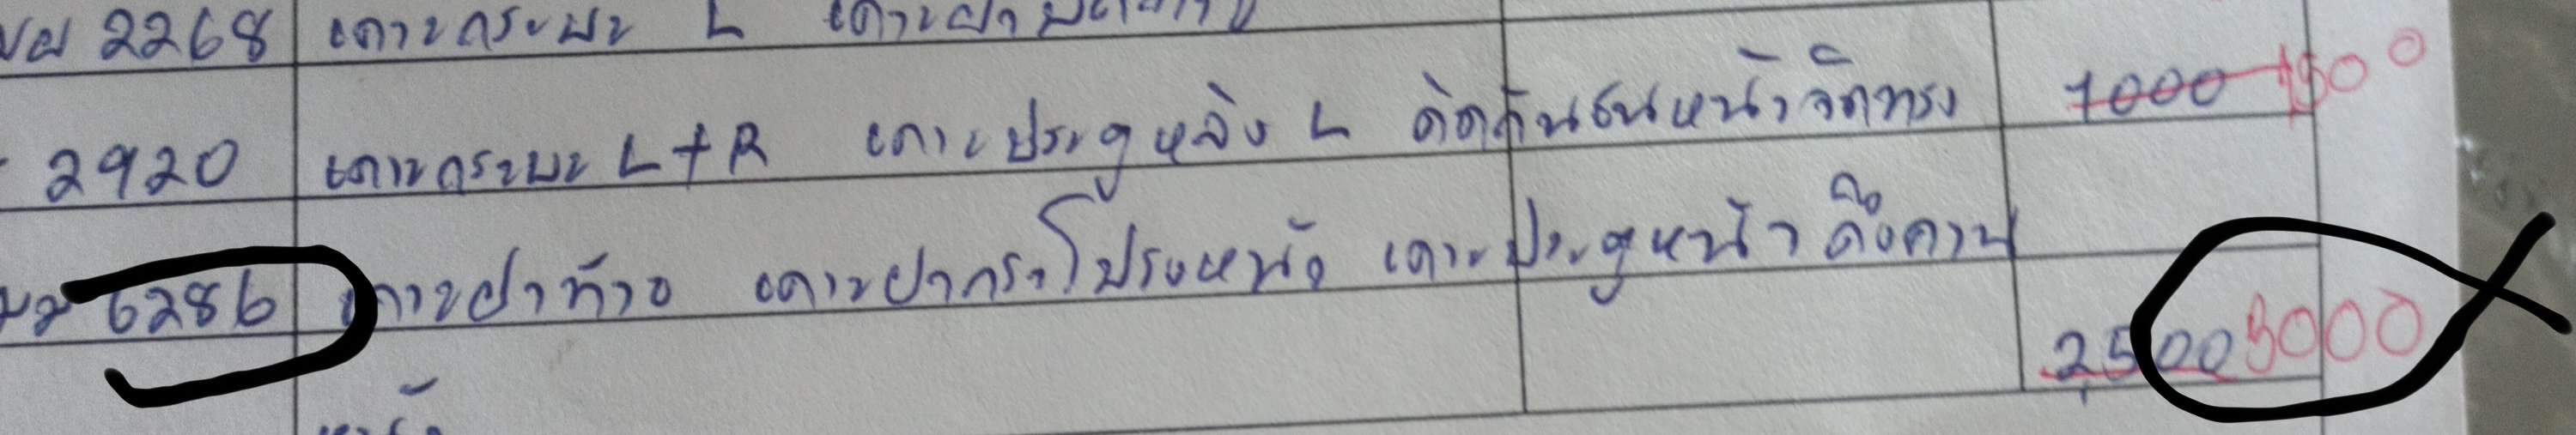 2268 เคาะกระบะ L เคาะฝา
2920 เคาะกระบะ L+R เคาะประตูหลัง L ติดกันชนหน้าจัดทรง 1000 1500
6286 เคาะฝาท้าย เคาะฝากระโปรงหน้า เคาะประตูหน้า ดึงคาน 2500 3000